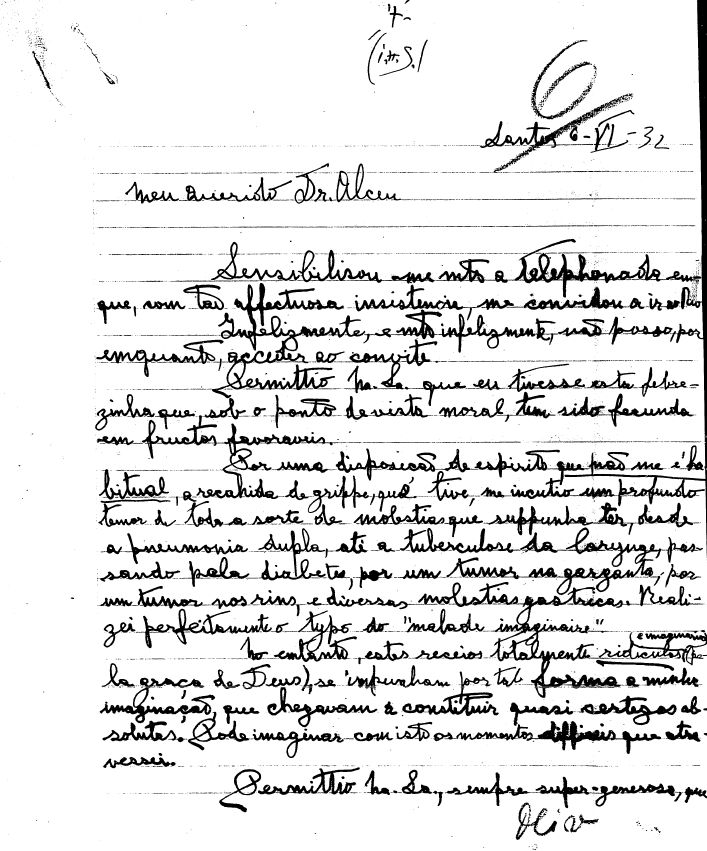 4-
6
Santos 6-VI-32
Meu querido Dr. Alceu
Sensibilisou-me mto a telephonada em
que, com tão affectuosa insistencia, me convidou a ir ao Rio
Infelizmente, e mto infelizmente, não posso, por
emquanto, acceder ao convite.
Permittio Na. Sa. que eu tivesse esta febre-
zinha que, sob o ponto de vista moral, tem sido fecunda
em fructos favoraveis.
Por uma disposição de espirito que não me é ha
bitual, a recahida de grippe, que tive, me incutio um profundo
temor de toda a sorte de molestias que suppunha ter, desde
a pneumonia dupla, até a tuberculose da larynge, pas
sando pela diabetes, por um tumor na garganta, por
um tumor nos rins, e diversas molestias gastricas. Reali-
zei perfeitamente o typo do "malade imaginaire"
e imaginarios
No entanto, estes receios totalmente ridiculos (pe-
la graça de Deus), se impunham por tal forma a minha
imaginação, que chegavam a constituir quasi certezas ab-
solutas. Pode imaginar com isto os momentos difficeis que atra-
vessei.
Permittio Na. Sa., sempre super-generosa, que